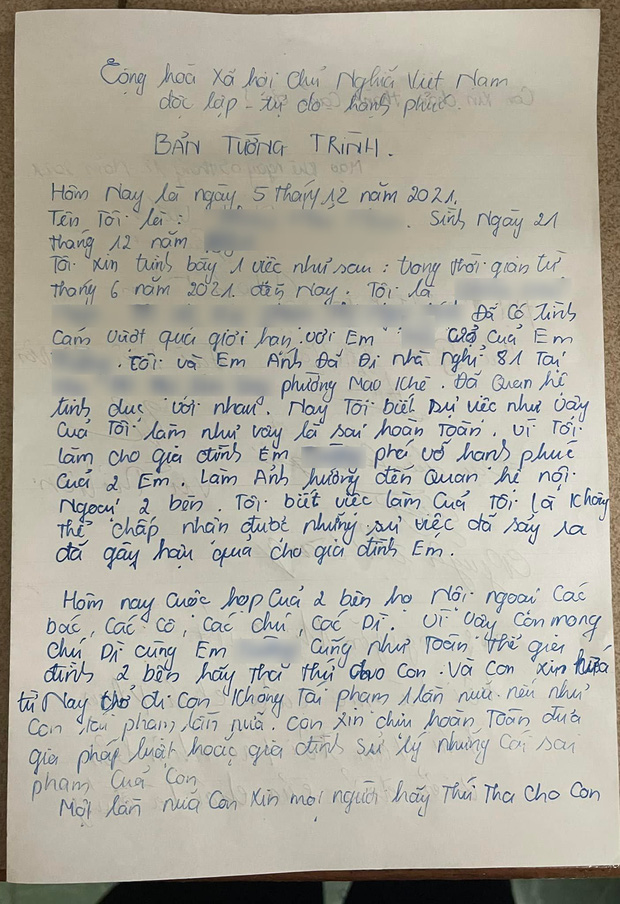 Cộng hoà xã hội chủ Nghĩa Việt Nam
độc lập - tự do - hạnh phúc.
BẢN TƯỜNG TRÌNH.
Hôm Nay là ngày 5 tháng 12 năm 2021.
Tên Tôi là : . Sinh Ngày 21
tháng 12 năm
Tôi xin trình bầy 1 việc như sau : trong thời gian từ
tháng 6 năm 2021. đến Nay. Tôi là
Đã Có tình
Cảm vượt quá giới hạn với Em Của Em
. Tôi và Em Ánh Đã Đi nhà nghỉ 81 Tại
phường Mạo Khê. Đã Quan hệ
tình dục với nhau. Nay Tôi biết sự việc như vậy
Của Tôi làm như vậy là sai hoàn Toàn. Vì Tôi
làm cho gia đình Em phá vỡ hạnh phúc
Của 2 Em. Làm Ảnh hưởng đến Quan hệ nội
Ngoại 2 bên. Tôi biết việc làm Của Tôi là Không
Thể chấp nhận được nhưng sự việc đã sảy ra
đã gây hậu quả cho gia đình Em.
Hôm nay Cuộc họp Của 2 bên họ Nội ngoại Các
bác, Các Cô, Các chú, Các Dì. Vì vậy Con mong
chú Dì cùng Em Cũng như Toàn thể gia
đình 2 bên hãy Tha thứ cho Con. Và Con xin hứa
từ Nay trở đi Con Không Tái phạm 1 lần nữa. nếu như
Con tái phạm lần nữa. Con xin chịu hoàn Toàn đưa
gia pháp luật hoặc gia đình sử lý những Cái sai
phạm Của Con
Một lần nữa Con xin mọi người hãy Thứ Tha Cho Con